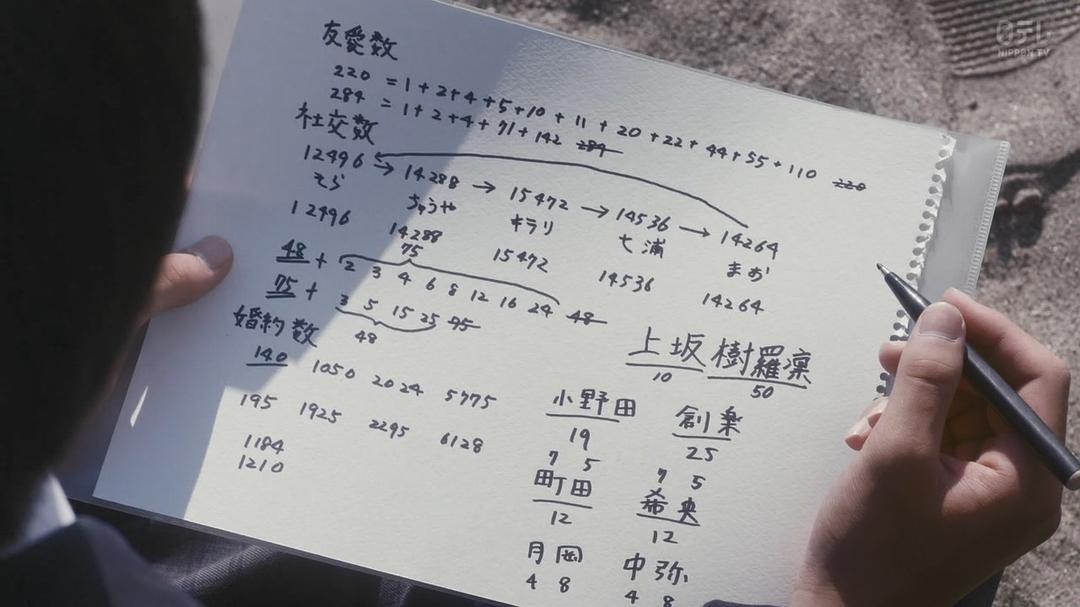 友愛数
220 = 1 + 2 + 4 + 5 + 10 + 11 + 20 + 22 + 44 + 55 + 110 220
284 = 1 + 2 + 4 + 71 + 142 284
社交数
12496 → 14288 → 15472 → 14536 → 14264
そら ちゅうや キラリ 七浦 まお
12496 14288 15472 14536 14264
75
48 + 2 3 4 6 8 12 16 24 48
75 + 3 5 15 25 75
48
婚約数
140 1050 2024 5775
195 1925 2295 6128
1184
1210
上坂 樹羅凜
10 50
小野田 創楽
19 25
7 5 7 5
町田 希央
12 12
月岡 中弥
4 8 4 8
日テレ
NIPPON TV